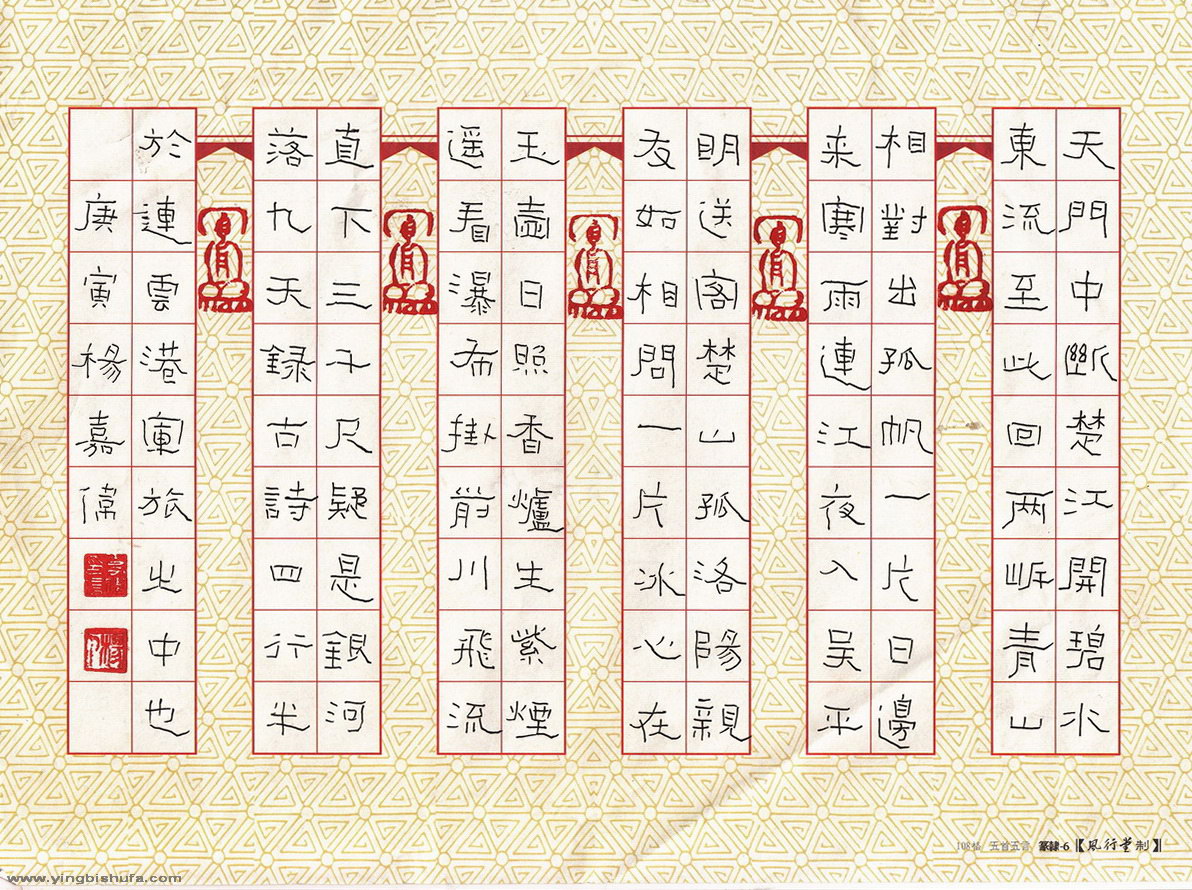 天門中斷楚江開碧水
東流至此回两岸青山
相對出孤帆一片日邊
来寒雨連江夜入吴平
明送客楚山孤洛陽親
友如相問一片冰心在
玉壺日照香爐生紫煙
遥看瀑布掛前川飛流
直下三千尺疑是銀河
落九天録古詩四行
於連雲港軍旅之中也
庚寅楊嘉偉
108格 五首五言 篆隸-6【風行堂制】
www.yingbishufa.com